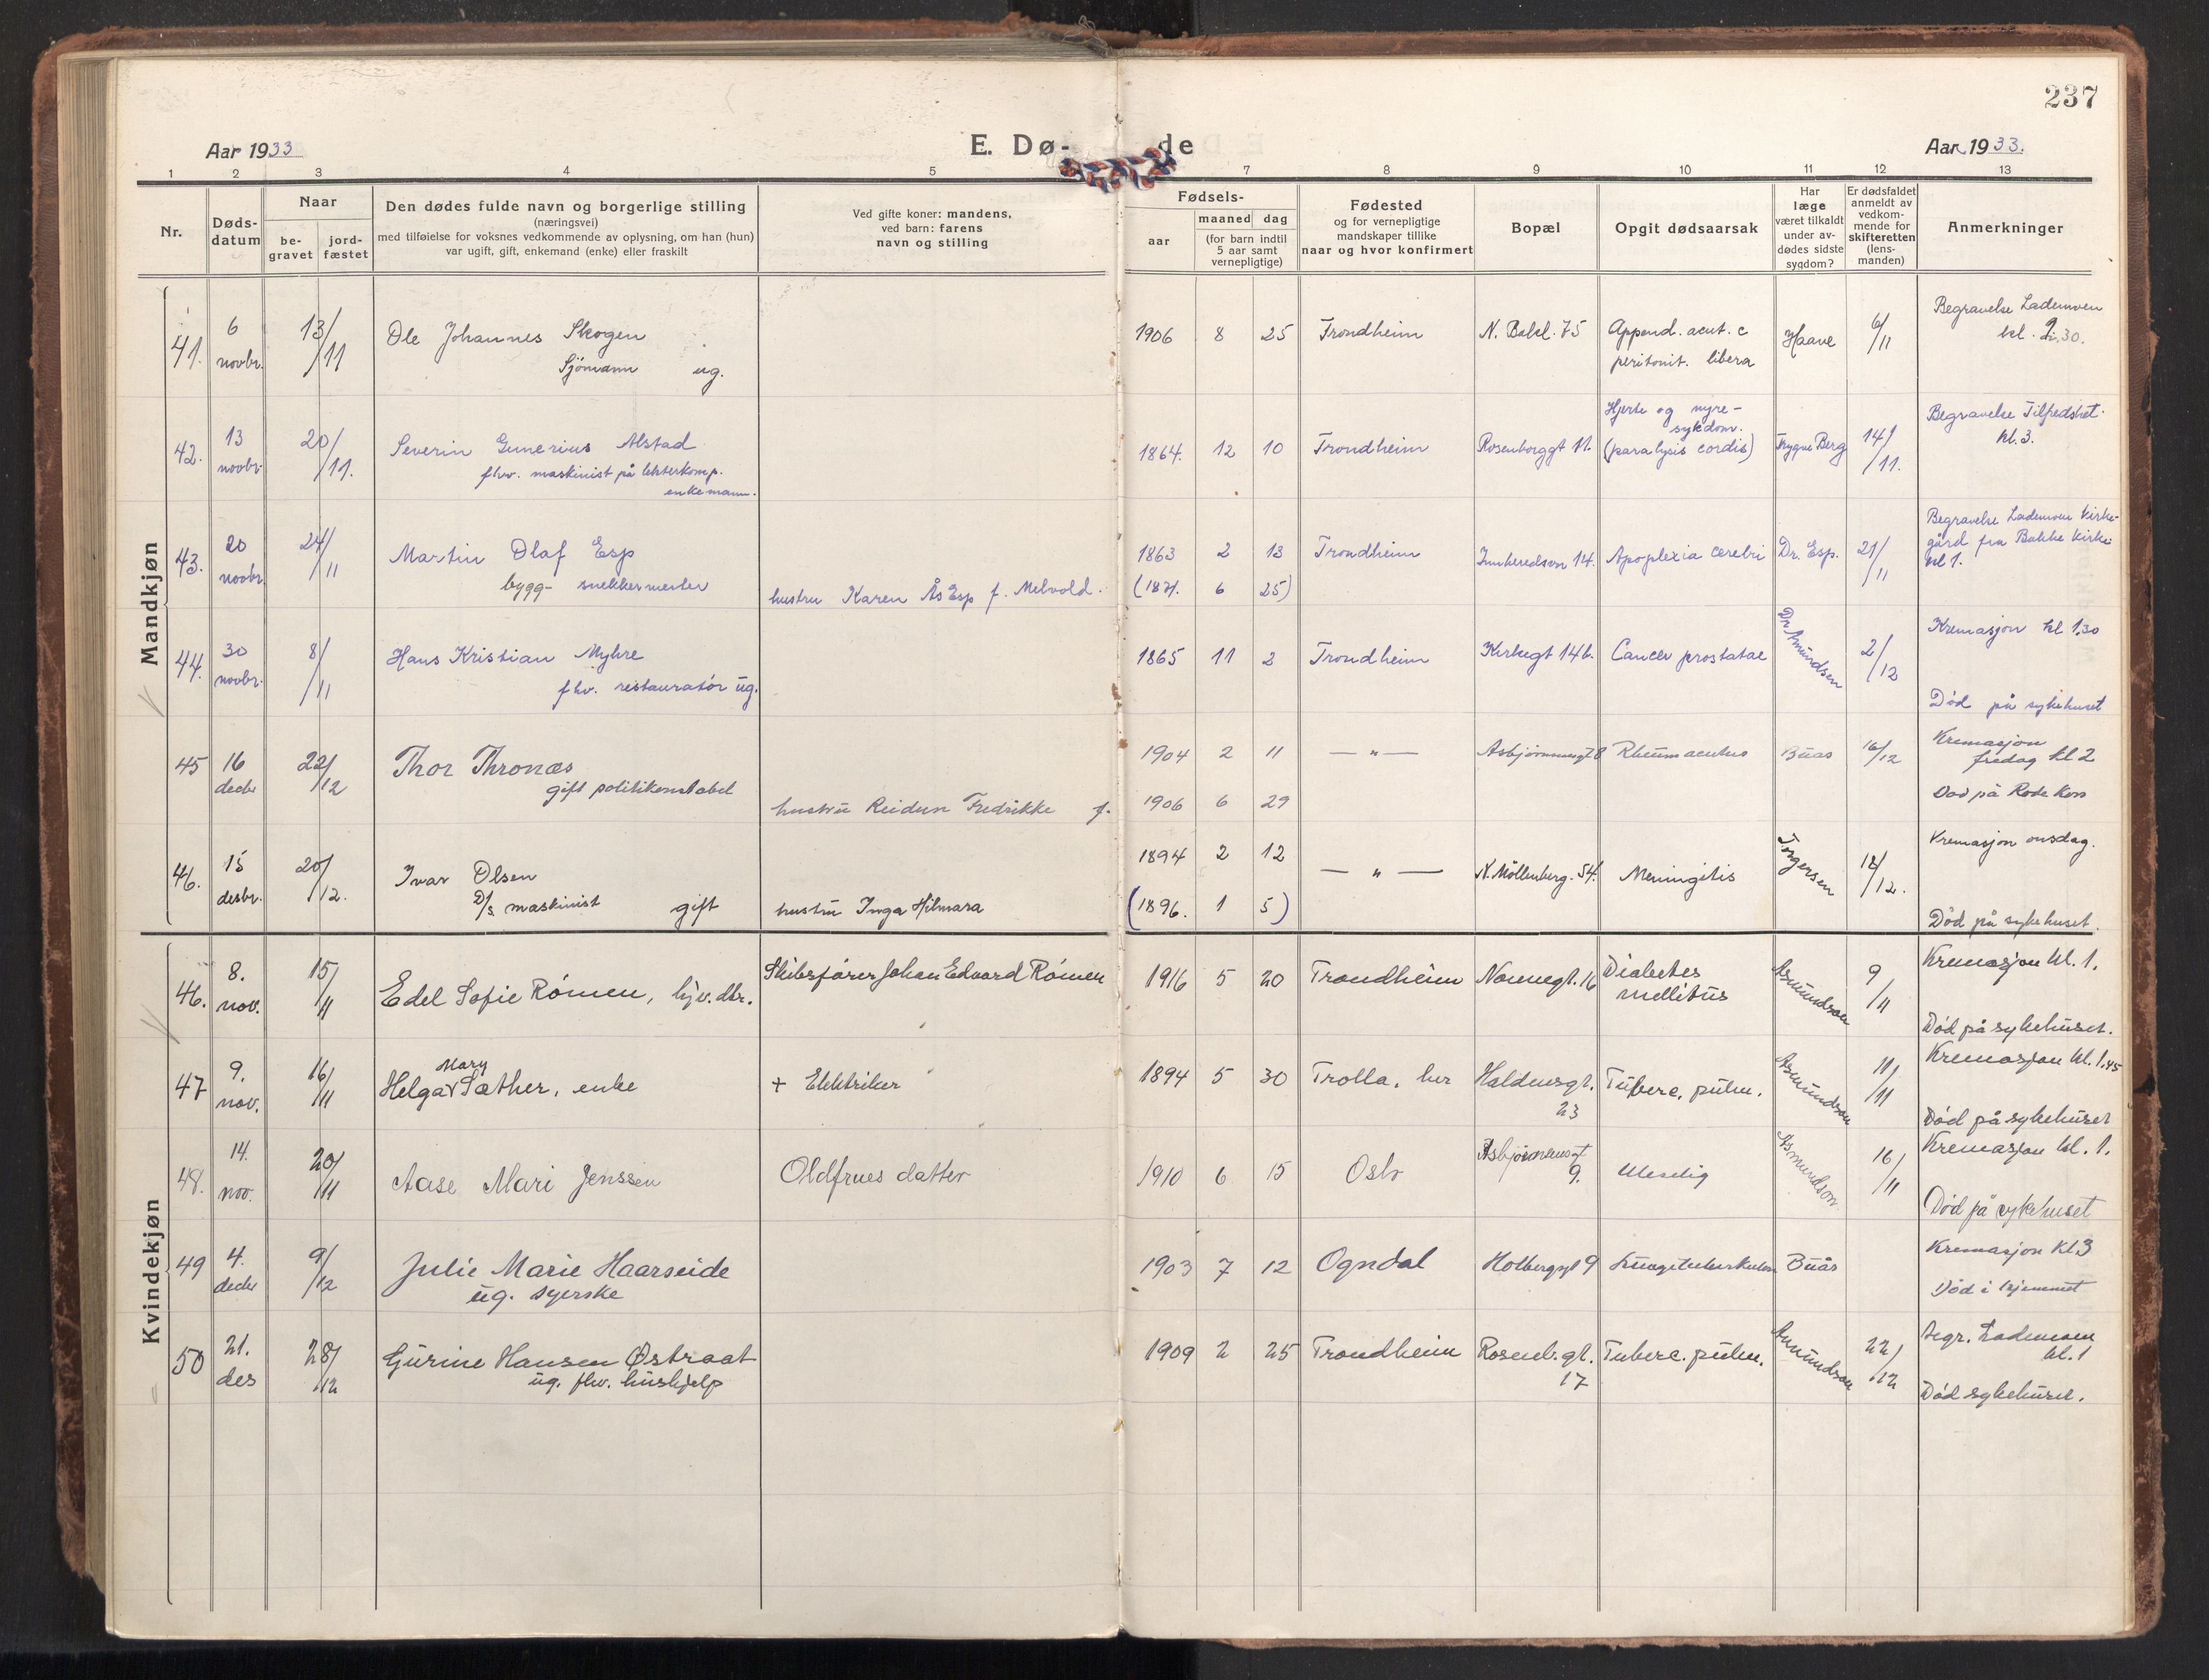 237
Aar 1933
E. Dø-
de
Aar 1933.
1 2 3 4 5 7 8 9 10 11 12 13
Nr.
Døds-
datum
Naar
be-
gravet
jord-
fæstet
Den dødes fulde navn og borgerlige stilling
(næringsvei)
med tilføielse for voksnes vedkommende av oplysning, om han (hun)
var ugift, gift, enkemand (enke) eller fraskilt
Ved gifte koner: mandens,
ved barn: farens
navn og stilling
Fødsels-
aar
maaned dag
(for barn indtil
5 aar samt
vernepligtige)
Fødested
og for vernepligtige
mandskaper tillike
naar og hvor konfirmert
Bopæl
Opgit dødsaarsak
Har
læge
været tilkaldt
under av-
dødes sidste
sygdom?
Er dødsfaldet
anmeldt av
vedkom-
mende for
skifteretten
(lens-
manden)
Anmerkninger
Mandkjøn
41. 6 novbr. 13/11 Ole Johannes Skogen
Sjömann ug.
1906 8 25 Trondheim N. Bakl. 75 Append. acut. c
peritonit. libera
Haave 6/11 Begravelse Lademoen
kl.
42. 13 novbr. 20/11. Severin Gunerius Alstad
fhv. maskinist på lekterkomp.
enkemann.
1864. 12 10 Trondheim Rosenborggt 11. Hjerte og nyre-
sykdom.
(paralysis cordis)
Trygve Berg 14/11. Begravelse Tilfredshet.
kl. 3.
43. 20 novbr. 24/11 Martin Olaf Esp
bygg- snekkermester
hustru Karen Ås Esp f. Melvold.
1863 2 13 Trondheim Innheredsvn 14. Apoplexia cerebri Dr. Esp. 21/11
(1871. 6 25)
Begravelse Lademoen kirke-
gård fra Bakke kirke
kl 1.
44. 30 novbr. 8/11 Hans Kristian Myhre
fhv. restauratör ug.
1865 11 2 Trondheim Kirkegt 14b. Cancer prostatae Dr Amundsen 2/12
Kremasjon kl 1,30
Död på sykehuset
45 16 decbr 22/12 Thor Thronæs
gift politikonstabel
hustru Reidun Fredrikke f.
1904 2 11 — " — Asbjörnsensgt 8 Rheum acutus Buas 16/12
1906 6 29
Kremasjon
fredag kl 2
Död på Röde Kors
46. 15 desbr. 20/12. Ivar Olsen
D/s maskinist gift
hustru Inga Hilmara
1894 2 12 — " — N. Möllenberg. 54. Meningitis Torgersen 18/12.
(1896. 1 5)
Kremasjon onsdag.
Död på sykehuset.
Kvindekjøn
46. 8. nov. 15/11 Edel Sofie Römen, hjv. dtr.
Skibsförer Johan Edvard Römen
1916 5 20 Trondheim Nonnegt. 16 Diabetes
mellitus
Asmundson 9/11 Kremasjon kl. 1.
Död på sykehuset.
47 9. nov. 16/11 Helga Mary Sæther, enke
+ Elektriker
1894 5 30 Trolla, her Haldensgt.
23
Tuberc. pulm.
Asmundson 11/11 Kremasjon kl. 1,45
Död på sykehuset
48. 14. nov. 20/11 Aase Mari Jenssen
Oldfrues datter
1910 6 15 Oslo Asbjörnsensgt
9.
Uleselig
Asmundson 16/11 Kremasjon kl. 1.
Död på sykehuset
49 4. decbr 9/12 Julie Marie Haarseide
ug. syerske
1903 7 12 Ogndal Holbergsgt 9 Lungetuberkulose Buås
Kremasjon kl 3
Död i hjemmet
50 21. des 28/12 Gurine Hansen Østraat
ug. fhv. hushjelp
1909 2 25 Trondheim Rosenb. gt.
17
Tuberc. pulm.
Asmundson 22/12 Begr. Lademoen
kl. 1
Död sykehuset.